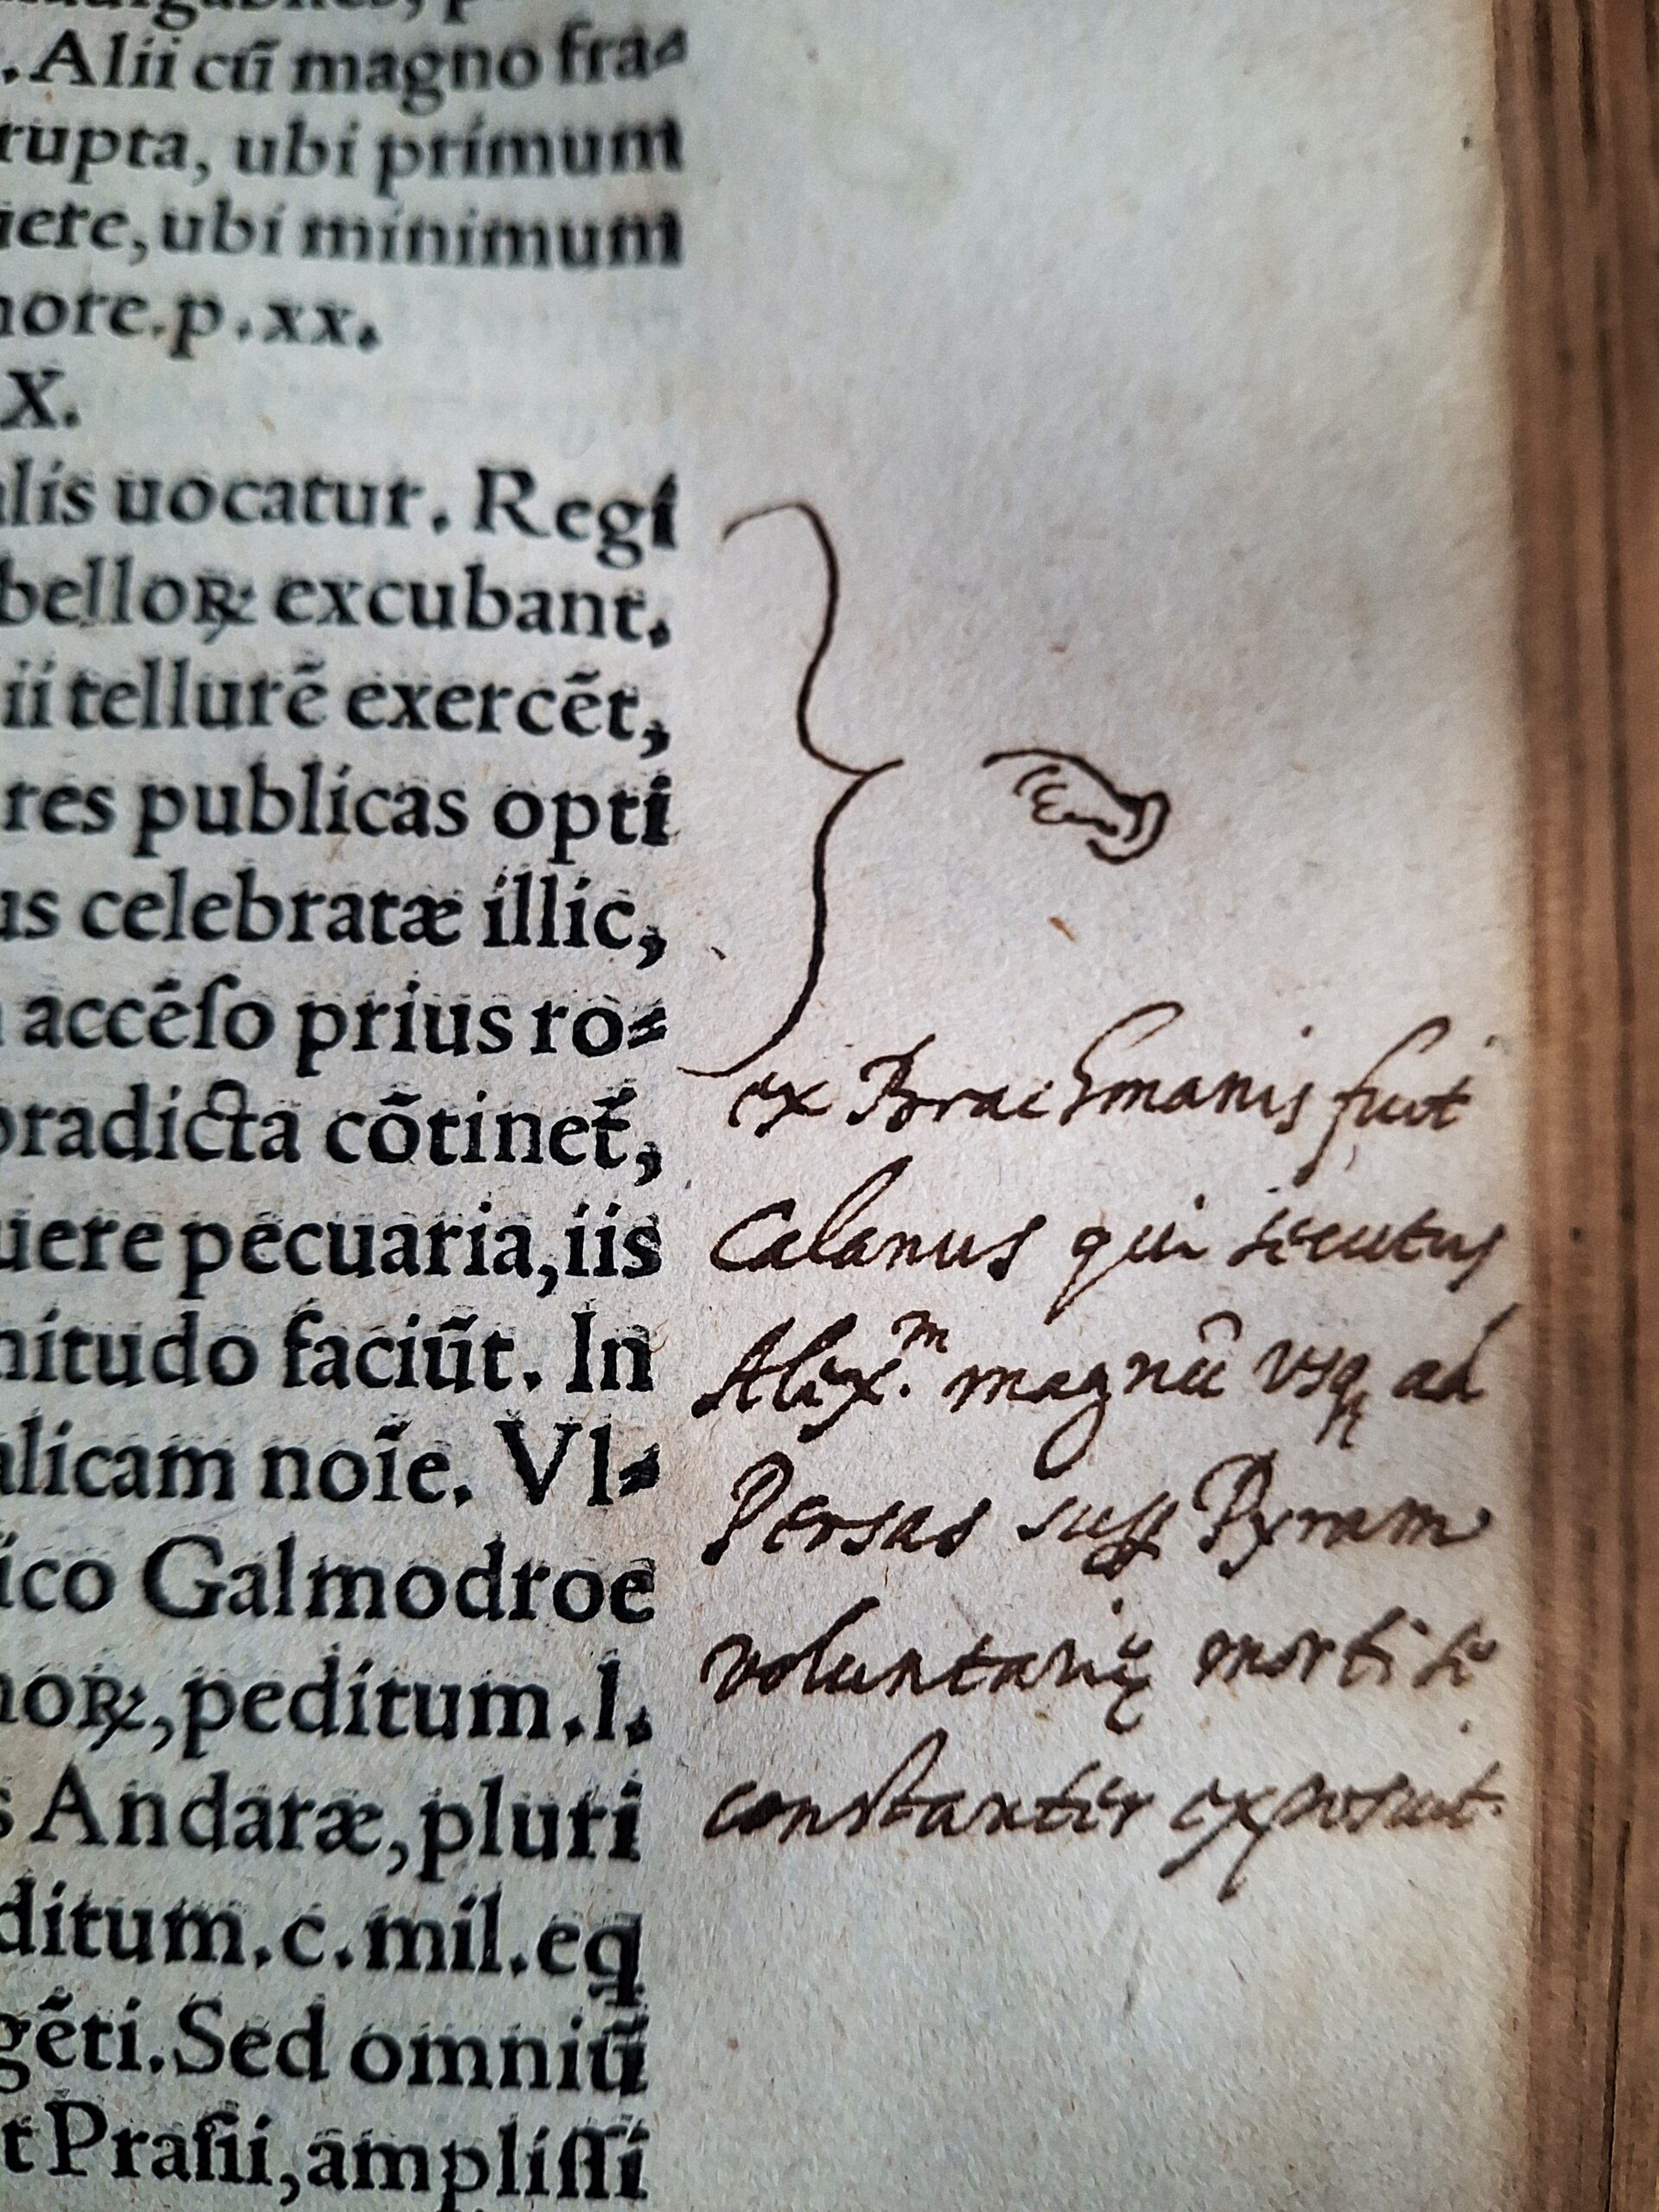 . Alii cũ magno fra-
rupta, ubi primum
ere, ubi minimum
ore. p. xx.
X.
lis uocatur. Regi
belloꝝ excubant.
ii tellurẽ exercẽt,
res publicas opti
us celebratæ illic,
accẽſo prius ro-
radicta cõtinet̃,
uere pecuaria, iis
nitudo faciũt. In
alicam noĩe. Vl-
ico Galmodroe
oꝝ, peditum. l.
s Andaræ, pluri
ditum. c. mil. eq
gẽti. Sed omniũ
t Praſii, ampliſſi
ex Brachmanis fuit
Calanus qui secutus
Alex.ᵐ magnũ vsqꝫ ad
Persas Pyram
morti se
constanter exposuit.